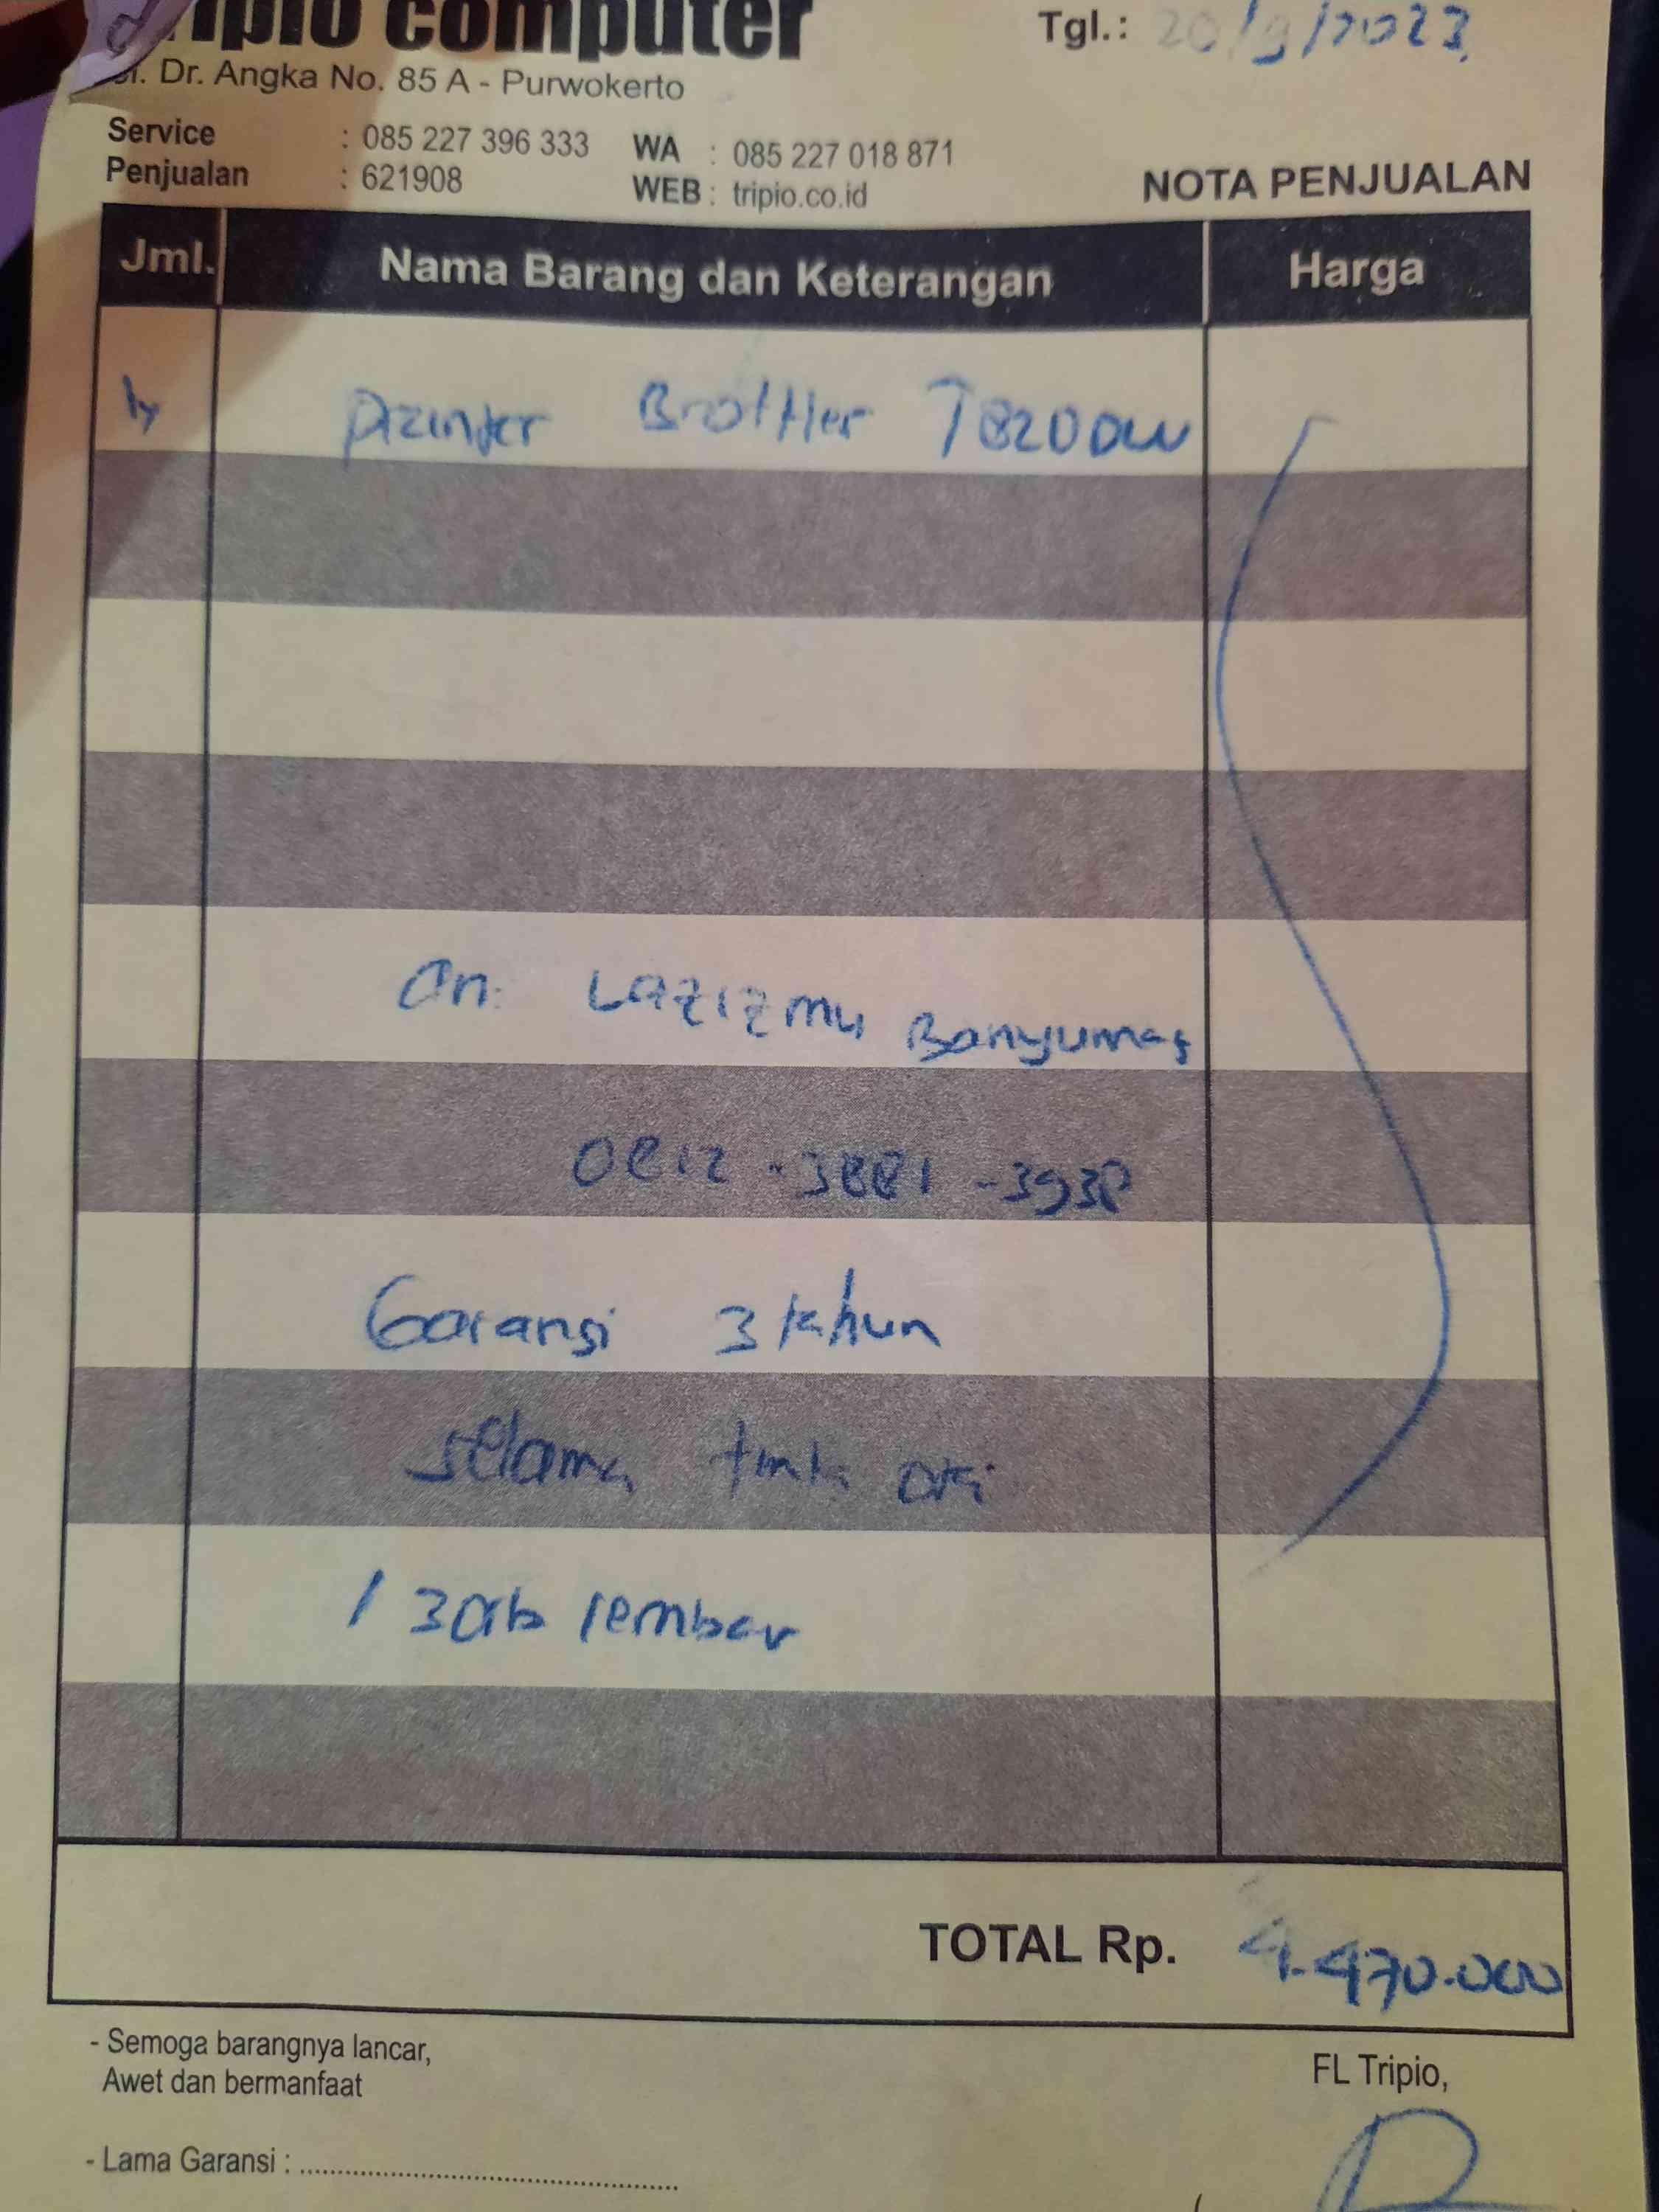 tripio computer
Jl. Dr. Angka No. 85 A - Purwokerto
Tgl.: 20/9/2023
Service : 085 227 396 333 WA : 085 227 018 871
Penjualan : 621908 WEB : tripio.co.id
NOTA PENJUALAN
Jml. Nama Barang dan Keterangan Harga
1x Printer Brother T820DW
An. LAZIZMU Banyumas
0812 - 3881 - 3938
Garansi 3 tahun
selama tinta ori
/ 30rb lembar
TOTAL Rp. 4.470.000
- Semoga barangnya lancar,
Awet dan bermanfaat
FL Tripio,
- Lama Garansi : ........................................